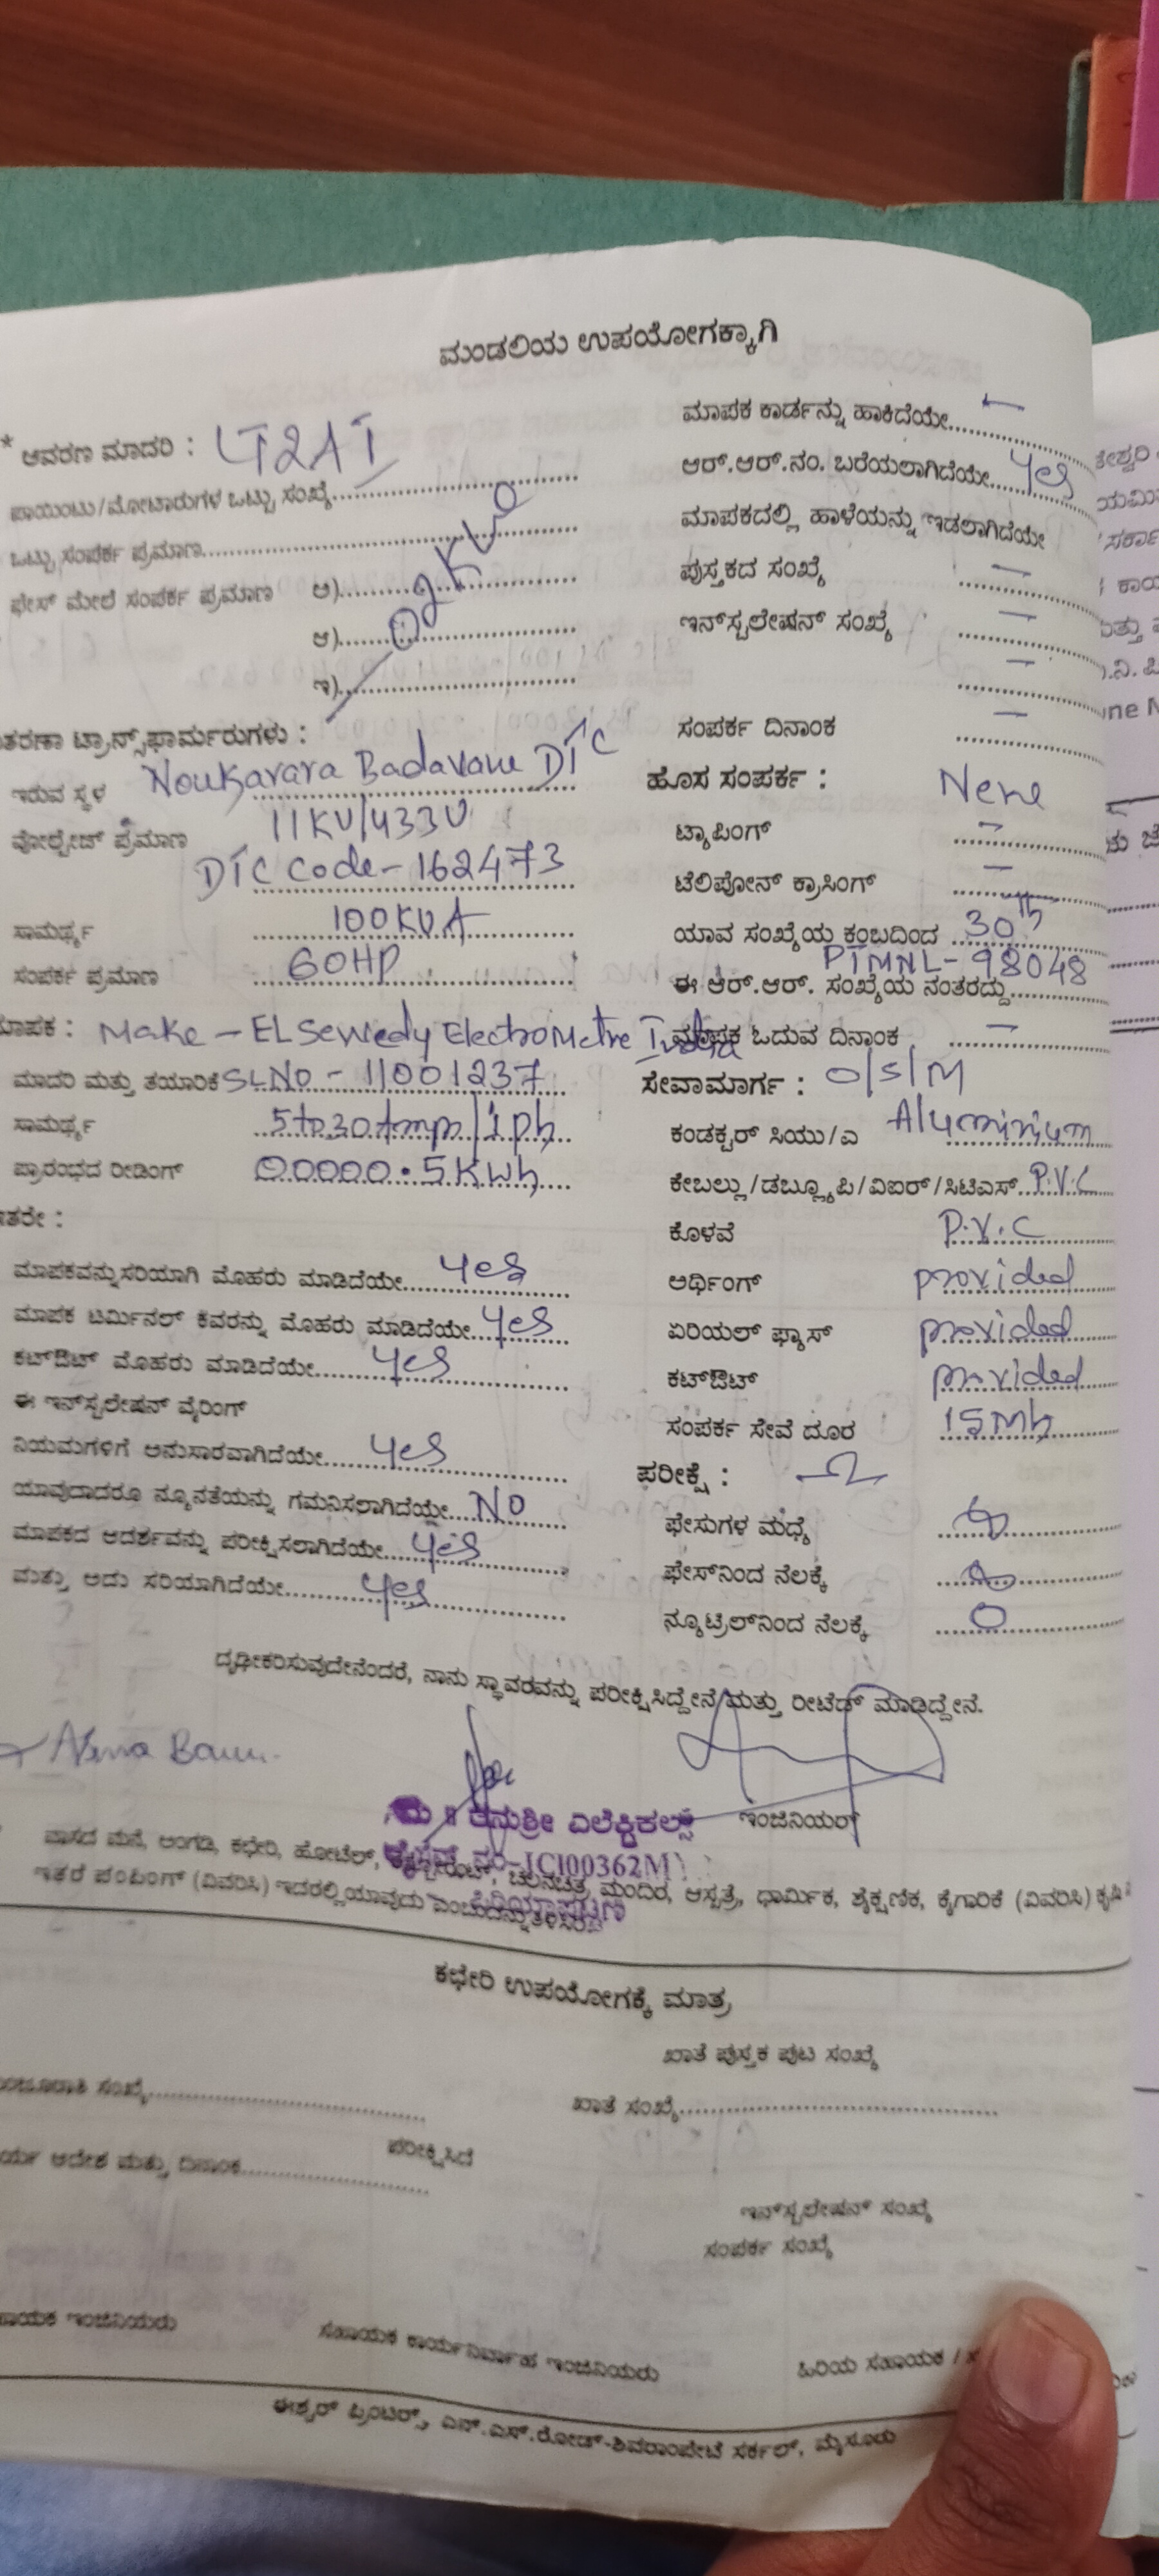 ಮಂಡಲಿಯ ಉಪಯೋಗಕ್ಕಾಗಿ
* ಆವರಣ ಮಾದರಿ : LT2AI
ಪಾಯಿಂಟು/ಮೋಟಾರುಗಳ ಒಟ್ಟು ಸಂಖ್ಯೆ
ಒಟ್ಟು ಸಂಪರ್ಕ ಪ್ರಮಾಣ
ಫೇಸ್ ಮೇಲೆ ಸಂಪರ್ಕ ಪ್ರಮಾಣ ಅ)
ಆ)
ಇ)
ತರಣಾ ಟ್ರಾನ್ಸ್‌ಫಾರ್ಮರುಗಳು :
ಇರುವ ಸ್ಥಳ Noukarara Badavane DTC
ವೋಲ್ಟೇಜ್ ಪ್ರಮಾಣ 11KV/433V
DTC Code - 162473
ಸಾಮರ್ಥ್ಯ 100KVA
ಸಂಪರ್ಕ ಪ್ರಮಾಣ 60HP
ಮಾಪಕ : Make - EL Sewedy Electrometre India
ಮಾದರಿ ಮತ್ತು ತಯಾರಿಕೆ SL.NO - 11001237
ಸಾಮರ್ಥ್ಯ 5 to 30 Amp/1 ph
ಪ್ರಾರಂಭದ ರೀಡಿಂಗ್ 00000.5 Kwh
ಇತರೇ :
ಮಾಪಕವನ್ನು ಸರಿಯಾಗಿ ಮೊಹರು ಮಾಡಿದೆಯೇ yes
ಮಾಪಕ ಟರ್ಮಿನಲ್ ಕವರನ್ನು ಮೊಹರು ಮಾಡಿದೆಯೇ yes
ಕಟ್‌ಔಟ್ ಮೊಹರು ಮಾಡಿದೆಯೇ yes
ಈ ಇನ್‌ಸ್ಟಲೇಷನ್ ವೈರಿಂಗ್
ನಿಯಮಗಳಿಗೆ ಅನುಸಾರವಾಗಿದೆಯೇ yes
ಯಾವುದಾದರೂ ನ್ಯೂನತೆಯನ್ನು ಗಮನಿಸಲಾಗಿದೆಯೇ NO
ಮಾಪಕದ ಆದರ್ಶವನ್ನು ಪರೀಕ್ಷಿಸಲಾಗಿದೆಯೇ yes
ಮತ್ತು ಅದು ಸರಿಯಾಗಿದೆಯೇ yes
ಮಾಪಕ ಕಾರ್ಡನ್ನು ಹಾಕಿದೆಯೇ -
ಆರ್.ಆರ್.ನಂ. ಬರೆಯಲಾಗಿದೆಯೇ yes
ಮಾಪಕದಲ್ಲಿ ಹಾಳೆಯನ್ನು ಇಡಲಾಗಿದೆಯೇ
ಪುಸ್ತಕದ ಸಂಖ್ಯೆ -
ಇನ್‌ಸ್ಟಲೇಷನ್ ಸಂಖ್ಯೆ -
-
ಸಂಪರ್ಕ ದಿನಾಂಕ -
ಹೊಸ ಸಂಪರ್ಕ : New
ಟ್ಯಾಪಿಂಗ್ -
ಟೆಲಿಪೋನ್ ಕ್ರಾಸಿಂಗ್ -
ಯಾವ ಸಂಖ್ಯೆಯ ಕಂಬದಿಂದ 30th
PTMNL - 98048
ಈ ಆರ್.ಆರ್. ಸಂಖ್ಯೆಯ ನಂತರದ್ದು
ಮಾಪಕ ಓದುವ ದಿನಾಂಕ -
ಸೇವಾಮಾರ್ಗ : O/S/M
ಕಂಡಕ್ಟರ್ ಸಿಯು/ಎ Aluminium
ಕೇಬಲ್ಲು/ಡಬ್ಲ್ಯೂಪಿ/ವಿಐರ್/ಸಿಟಿಎಸ್ P.V.C
ಕೊಳವೆ P.V.C
ಅರ್ಥಿಂಗ್ provided
ಏರಿಯಲ್ ಫ್ಯೂಸ್ provided
ಕಟ್‌ಔಟ್ provided
ಸಂಪರ್ಕ ಸೇವೆ ದೂರ 15Mt
ಪರೀಕ್ಷೆ : Ω
ಫೇಸುಗಳ ಮಧ್ಯೆ
ಫೇಸ್‌ನಿಂದ ನೆಲಕ್ಕೆ
ನ್ಯೂಟ್ರಲ್‌ನಿಂದ ನೆಲಕ್ಕೆ 0
ದೃಢೀಕರಿಸುವುದೇನೆಂದರೆ, ನಾನು ಸ್ಥಾವರವನ್ನು ಪರೀಕ್ಷಿಸಿದ್ದೇನೆ ಮತ್ತು ರೀಟೆಡ್ ಮಾಡಿದ್ದೇನೆ.
ತನುಶ್ರೀ ಎಲೆಕ್ಟ್ರಿಕಲ್ಸ್ ಇಂಜಿನಿಯರ್
1CI00362M
ಪಿರಿಯಾಪಟ್ಟಣ
ವಾಸದ ಮನೆ, ಅಂಗಡಿ, ಕಛೇರಿ, ಹೋಟೆಲ್, ಚಲನಚಿತ್ರ ಮಂದಿರ, ಆಸ್ಪತ್ರೆ, ಧಾರ್ಮಿಕ, ಶೈಕ್ಷಣಿಕ, ಕೈಗಾರಿಕೆ (ವಿವರಿಸಿ) ಕೃಷಿ
ಇತರೆ ಪಂಪಿಂಗ್ (ವಿವರಿಸಿ) ಇದರಲ್ಲಿ ಯಾವುದು ಎಂಬುದನ್ನು ತಿಳಿಸಿರಿ
ಕಛೇರಿ ಉಪಯೋಗಕ್ಕೆ ಮಾತ್ರ
ಖಾತೆ ಪುಸ್ತಕ ಪುಟ ಸಂಖ್ಯೆ
ಮಂಜೂರಾತಿ ಸಂಖ್ಯೆ
ಖಾತೆ ಸಂಖ್ಯೆ
ಆದೇಶ ಮತ್ತು ದಿನಾಂಕ
ಪರೀಕ್ಷಿಸಿದೆ
ಇನ್‌ಸ್ಟಲೇಷನ್ ಸಂಖ್ಯೆ
ಸಂಪರ್ಕ ಸಂಖ್ಯೆ
ಸಹಾಯಕ ಇಂಜಿನಿಯರು
ಸಹಾಯಕ ಕಾರ್ಯನಿರ್ವಾಹ ಇಂಜಿನಿಯರು
ಹಿರಿಯ ಸಹಾಯಕ /
ಈಶ್ವರ್ ಪ್ರಿಂಟರ್ಸ್, ಎನ್.ಎಸ್.ರೋಡ್-ಶಿವರಾಂಪೇಟೆ ಸರ್ಕಲ್, ಮೈಸೂರು